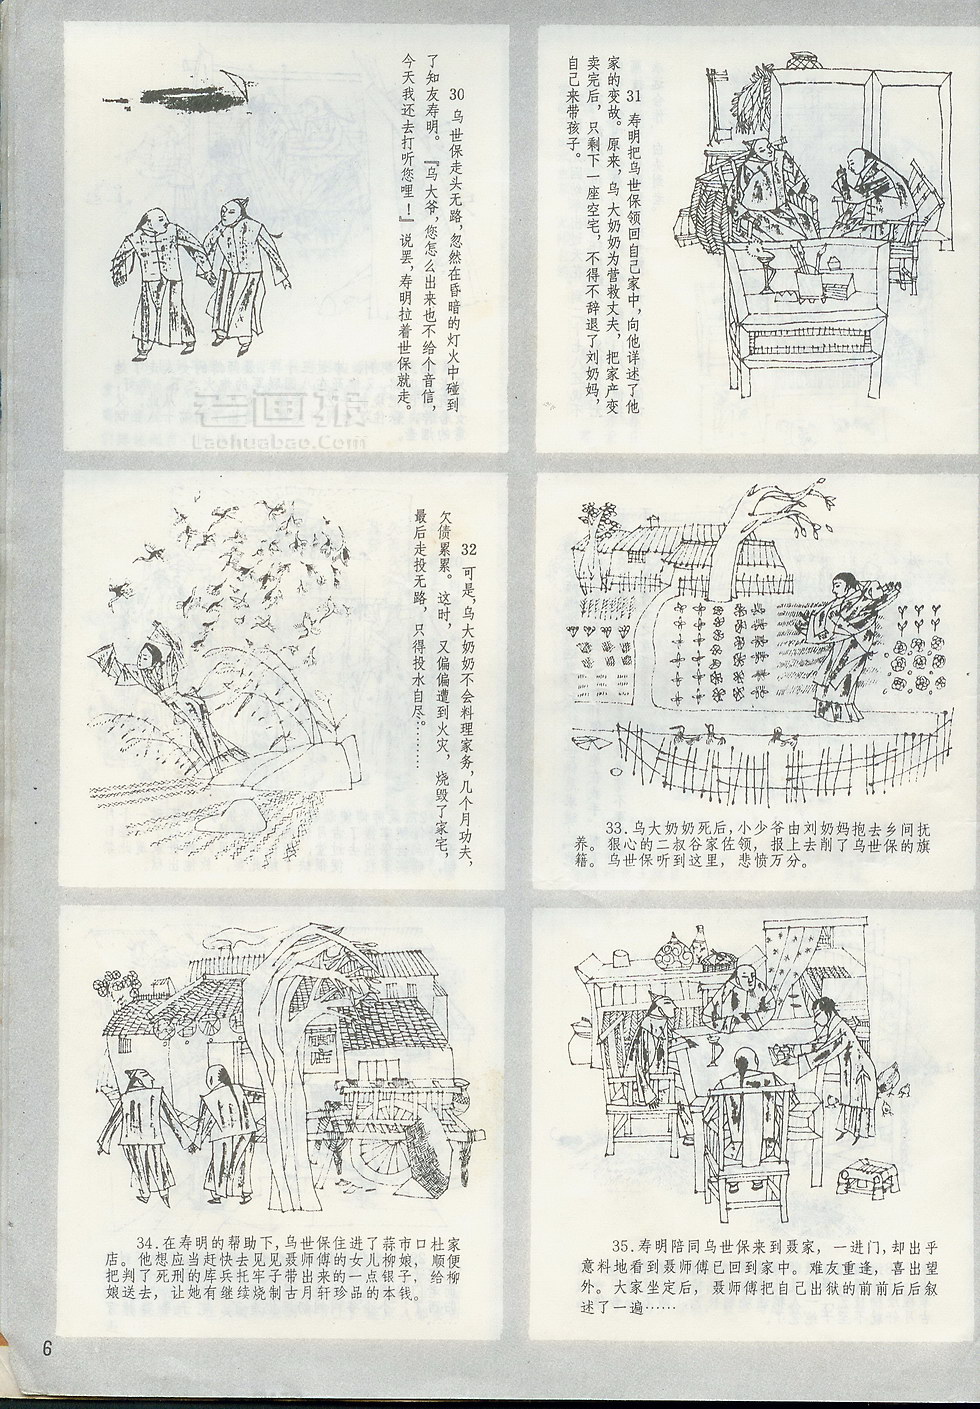 30 乌世保走头无路，忽然在昏暗的灯火中碰到
了知友寿明。『乌大爷，您怎么出来也不给个音信，
今天我还去打听您哩！』说罢，寿明拉着世保就走。
老画报
Laohuabao.Com
31 寿明把乌世保领回自己家中，向他详述了他
家的变故。原来，乌大奶奶为营救丈夫，把家产变
卖完后，只剩下一座空宅，不得不辞退了刘奶妈，
自己来带孩子。
32 可是，乌大奶奶不会料理家务，几个月功夫，
欠债累累。这时，又偏偏遭到火灾，烧毁了家宅，
最后走投无路，只得投水自尽。………
33.乌大奶奶死后，小少爷由刘奶妈抱去乡间抚
养。狠心的二叔谷家佐领，报上去削了乌世保的旗
籍。乌世保听到这里，悲愤万分。
34.在寿明的帮助下，乌世保住进了蒜市口杜家
店。他想应当赶快去见见聂师傅的女儿柳娘，顺便
把判了死刑的库兵托牢子带出来的一点银子，给柳
娘送去，让她有继续烧制古月轩珍品的本钱。
35.寿明陪同乌世保来到聂家，一进门，却出乎
意料地看到聂师傅已回到家中。难友重逢，喜出望
外。大家坐定后，聂师傅把自己出狱的前前后后叙
述了一遍……
6